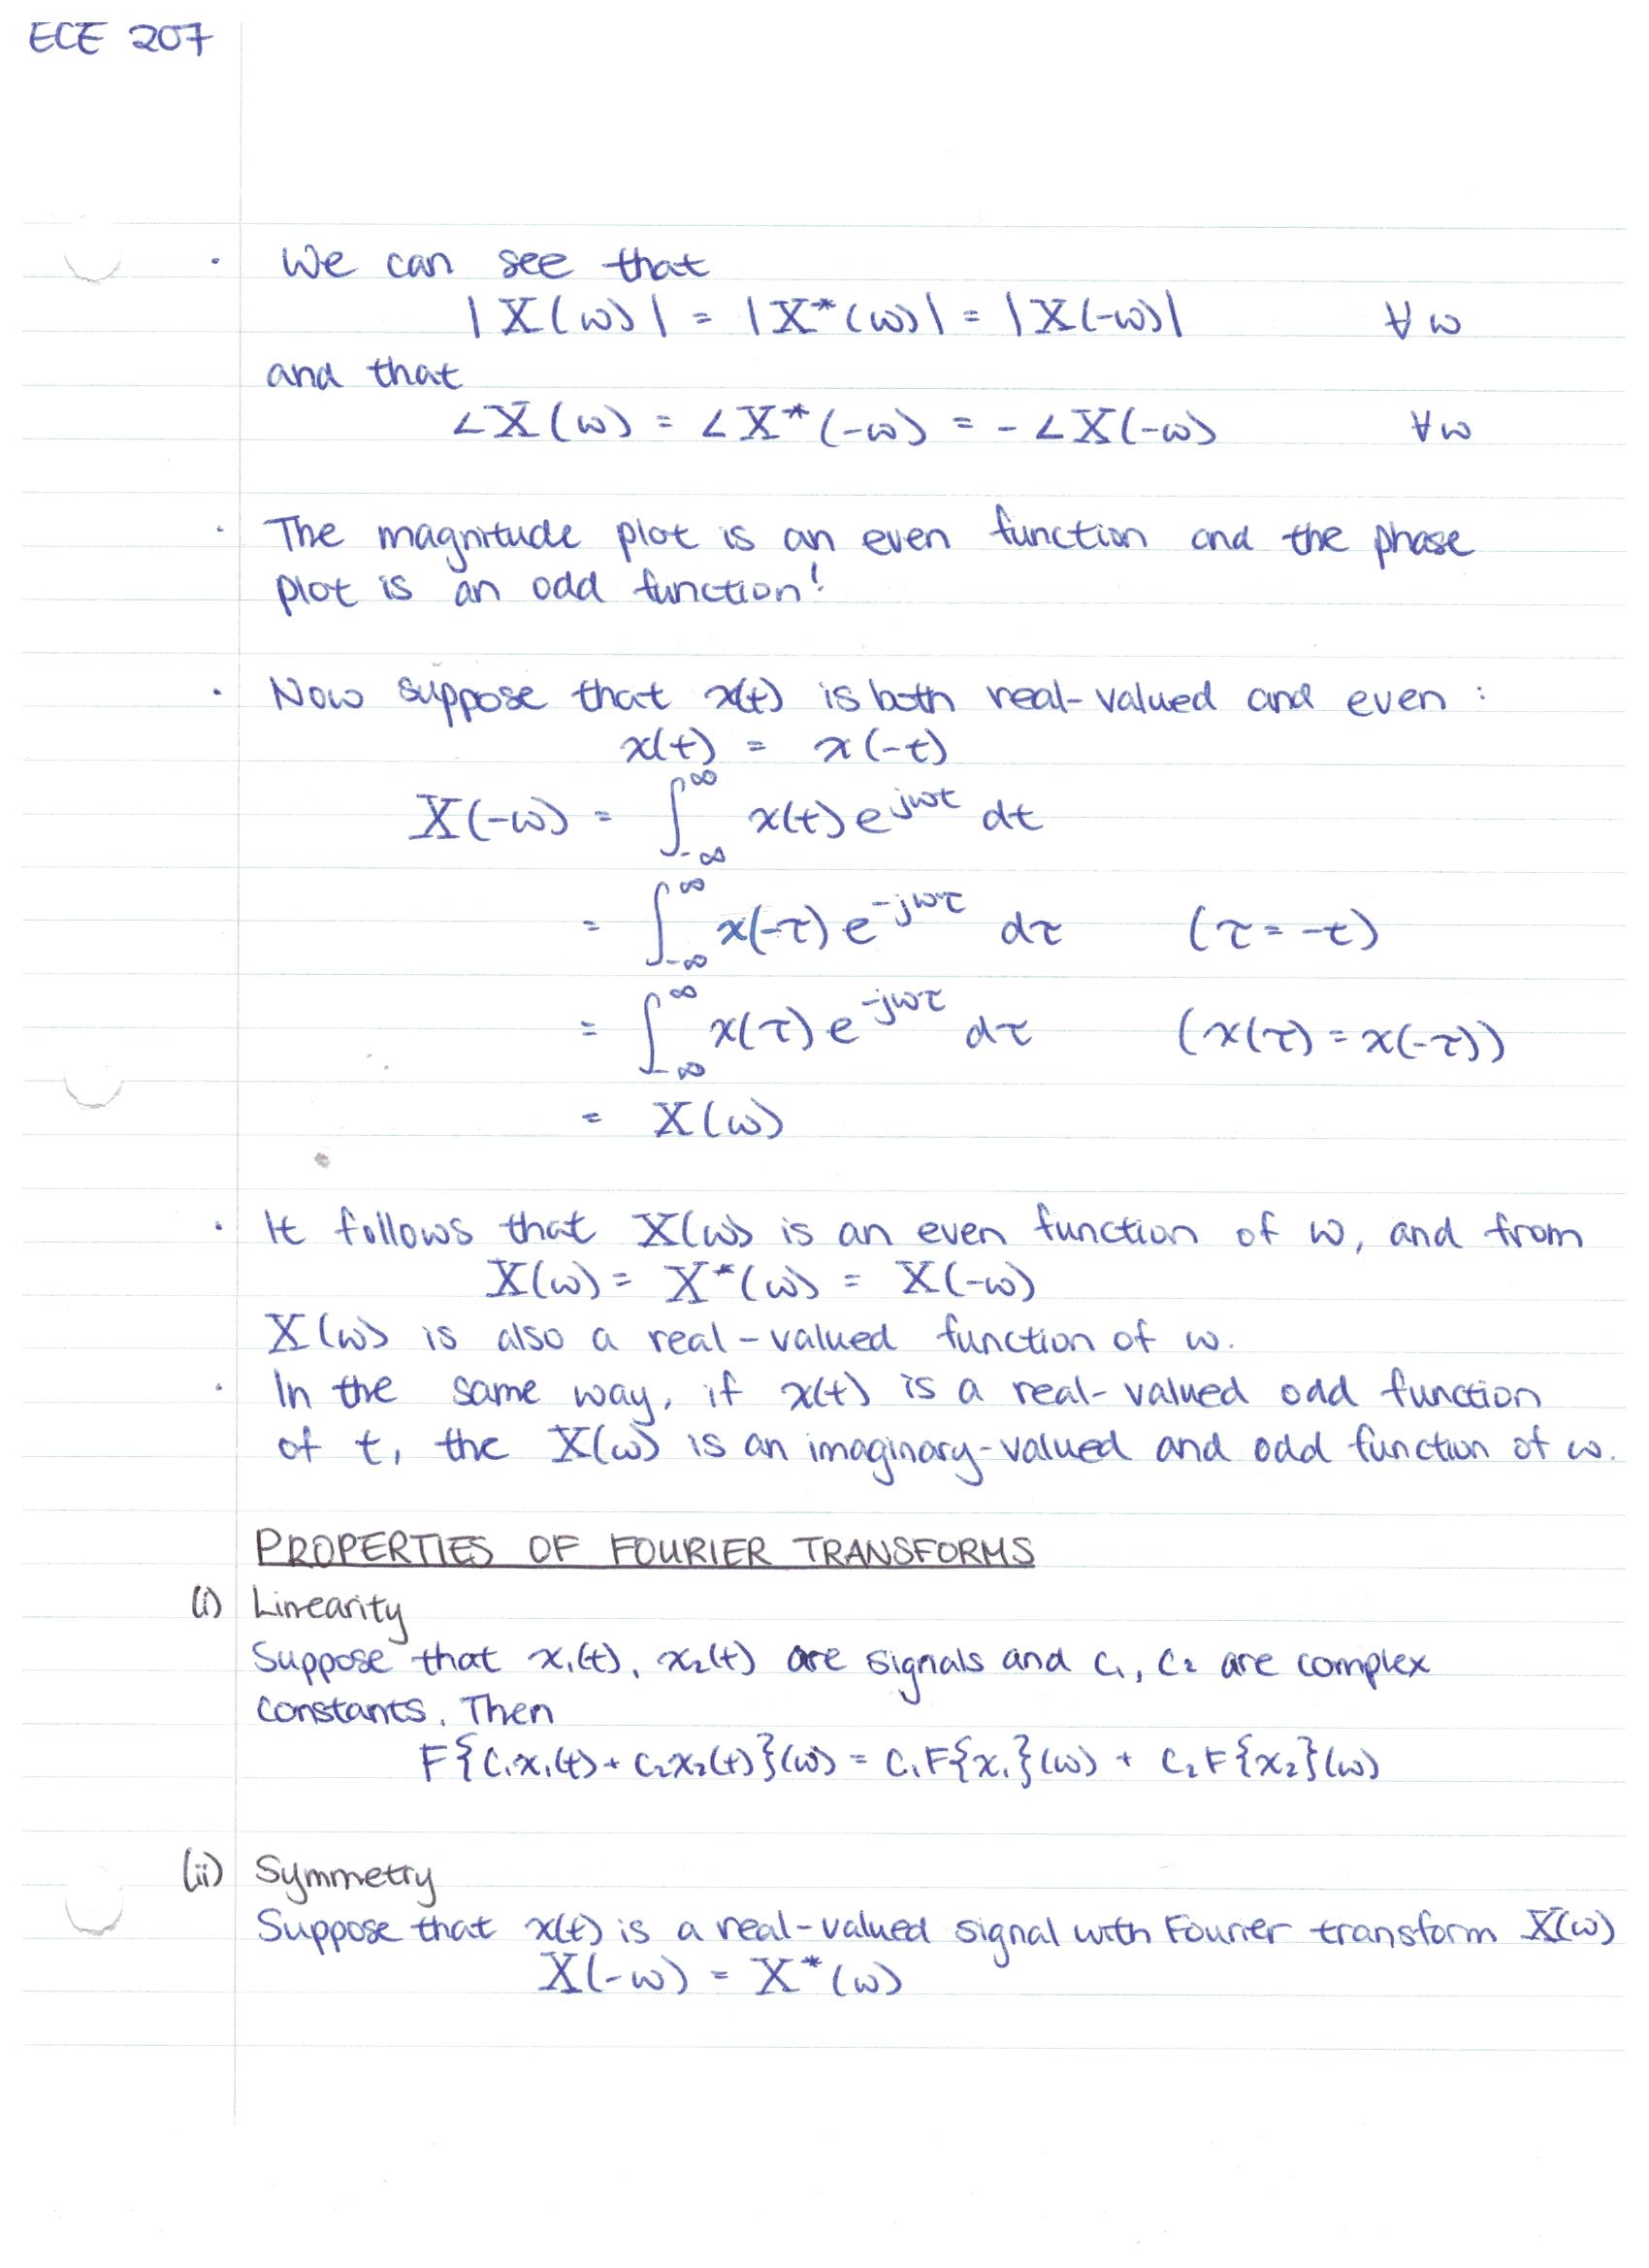 ECE 207
· We can see that
|X(ω)| = |X*(ω)| = |X(-ω)| ∀ω
and that
∠X(ω) = ∠X*(-ω) = -∠X(-ω) ∀ω
· The magnitude plot is an even function and the phase
plot is an odd function!
· Now suppose that x(t) is both real-valued and even :
x(t) = x(-t)
X(-ω) = ∫_{-∞}^{∞} x(t) e^{jωt} dt
= ∫_{-∞}^{∞} x(-τ) e^{-jωτ} dτ (τ = -t)
= ∫_{-∞}^{∞} x(τ) e^{-jωτ} dτ (x(τ) = x(-τ))
= X(ω)
· It follows that X(ω) is an even function of ω, and from
X(ω) = X*(ω) = X(-ω)
X(ω) is also a real-valued function of ω.
· In the same way, if x(t) is a real-valued odd function
of t, the X(ω) is an imaginary-valued and odd function of ω.
PROPERTIES OF FOURIER TRANSFORMS
(i) Linearity
Suppose that x₁(t), x₂(t) are signals and c₁, c₂ are complex
constants. Then
F{c₁x₁(t) + c₂x₂(t)}(ω) = c₁F{x₁}(ω) + c₂F{x₂}(ω)
(ii) Symmetry
Suppose that x(t) is a real-valued signal with Fourier transform X(ω)
X(-ω) = X*(ω)